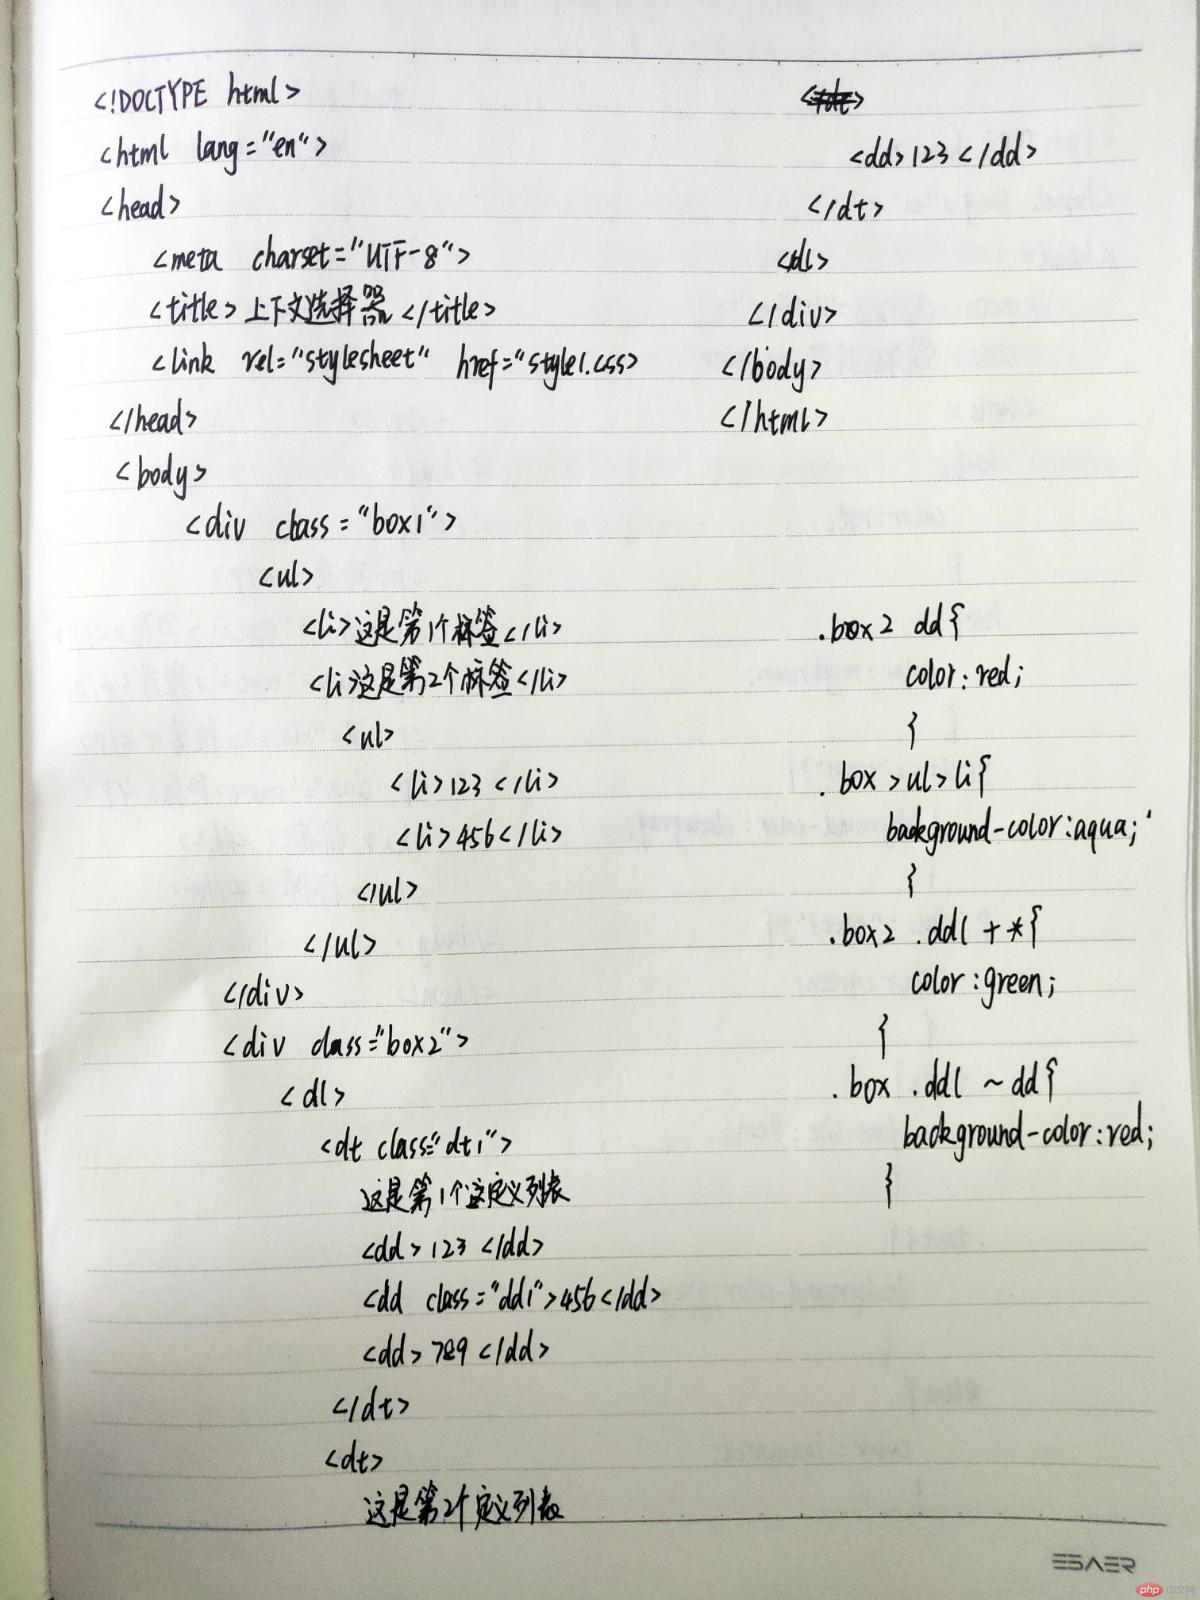 <!DOCTYPE html>
<html lang="en">
<head>
<meta charset="UTF-8">
<title>上下文选择器</title>
<link rel="stylesheet" href="style1.css>
</head>
<body>
<div class="box1">
<ul>
<li>这是第1个标签</li>
<li>这是第2个标签</li>
<ul>
<li>123</li>
<li>456</li>
</ul>
</ul>
</div>
<div class="box2">
<dl>
<dt class="dt1">
这是第1个这定义列表
<dd>123</dd>
<dd class="dd1">456</dd>
<dd>789</dd>
</dt>
<dt>
这是第2个定义列表
<dt>
<dd>123</dd>
</dt>
<dl>
</div>
</body>
</html>
.box2 dd{
color:red;
}
.box>ul>li{
background-color:aqua;
}
.box2 .dd1 + *{
color:green;
}
.box .dd1 ~ dd{
background-color:red;
}
ESAER
php